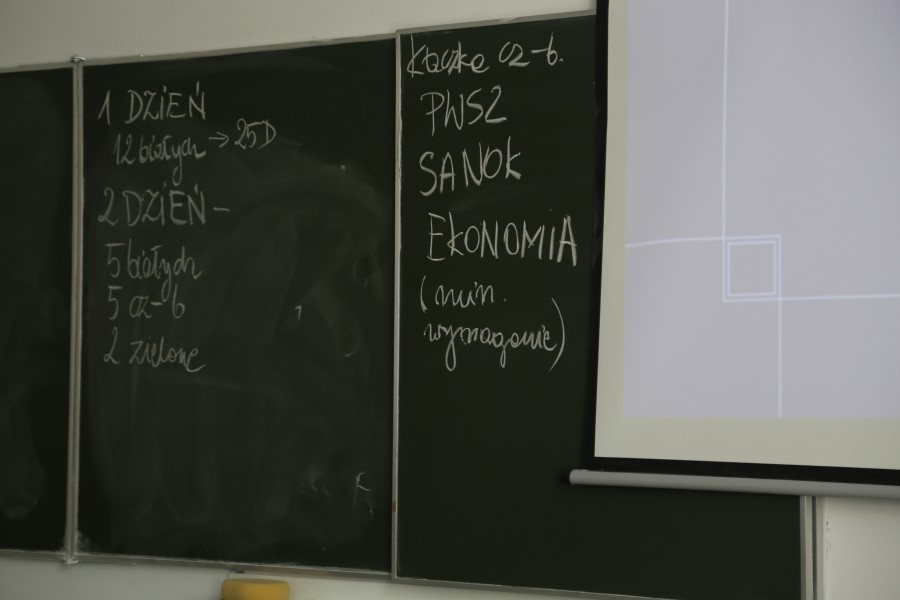 1 DZIEŃ
12 białych → 25D
2 DZIEŃ –
5 białych
5 cz-b
2 zielone
kaczkę cz-b.
PWSZ
SANOK
EKONOMIA
(min.
wymaganie)